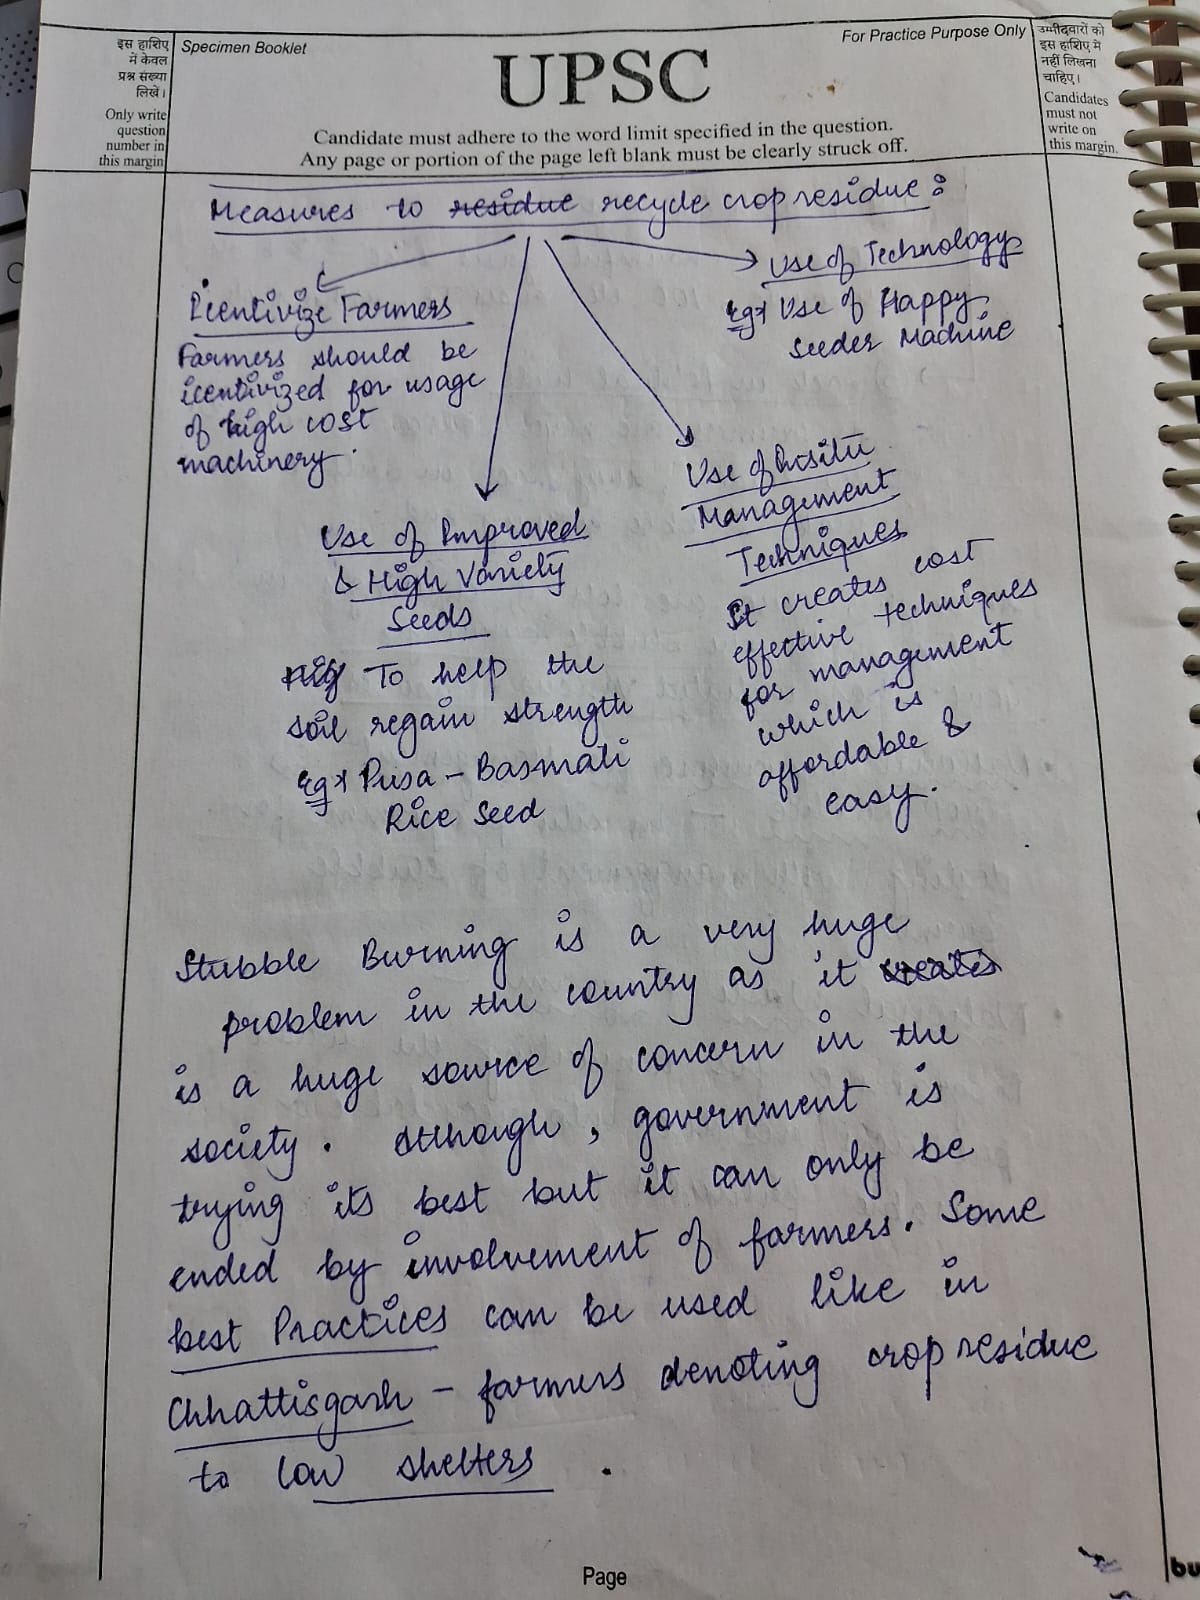 इस हाशिए
में केवल
प्रश्न संख्या
लिखें।
Only write
question
number in
this margin
Specimen Booklet
For Practice Purpose Only
UPSC
Candidate must adhere to the word limit specified in the question.
Any page or portion of the page left blank must be clearly struck off.
उम्मीदवारों को
इस हाशिए में
नहीं लिखना
चाहिए।
Candidates
must not
write on
this margin.
Measures to residue recycle crop residue:
Icentivize Farmers
Farmers should be
icentivized for usage
of high cost
machinery.
Use of Improved
& High Variety
Seeds
To help the
soil regain strength
Eg* Pusa - Basmati
Rice Seed
Use of Insitu
Management
Techniques
It creates cost
effective techniques
for management
which is
affordable &
easy.
Use of Technology
Eg* Use of Happy
Seeder Machine
Stubble Burning is a very huge
problem in the country as it creates
is a huge source of concern in the
society. Although, government is
trying its best but it can only be
ended by involvement of farmers. Some
best Practices can be used like in
Chhattisgarh - farmers denoting crop residue
to low shelters.
Page
bu